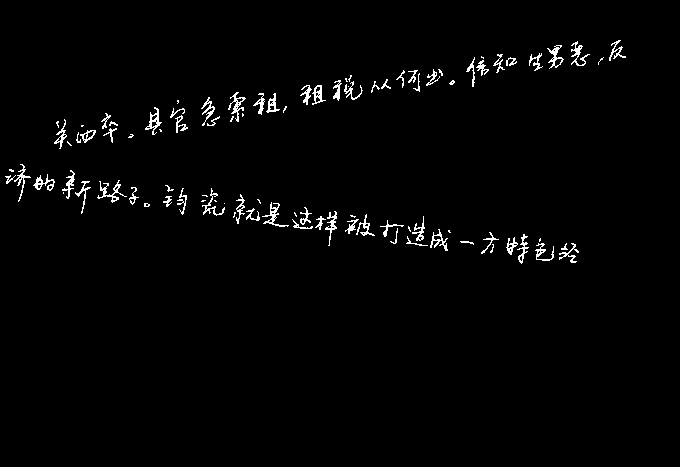 关西卒。县官急索租,租税从何出。信知生男恶,反
济的新路子。钧瓷就是这样被打造成一方特色经